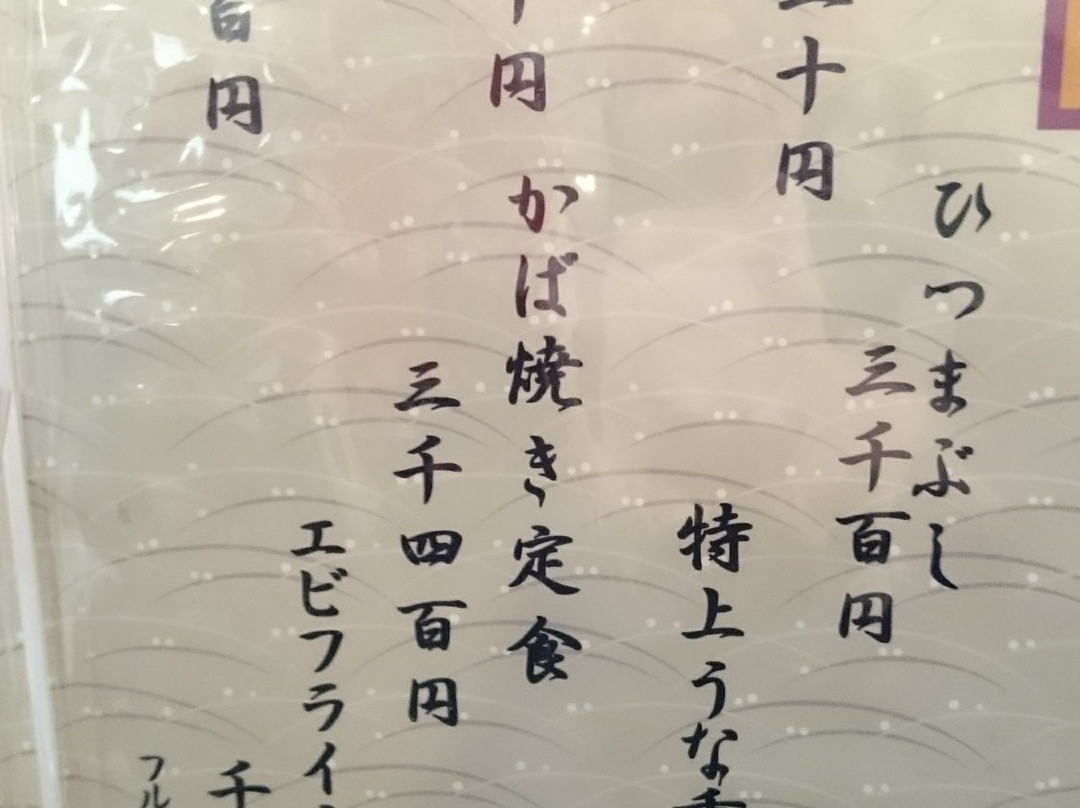 ひつまぶし
三千百円
十円
特上うな
円
かば焼き定食
三千四百円
エビフライ
百円
千
フル